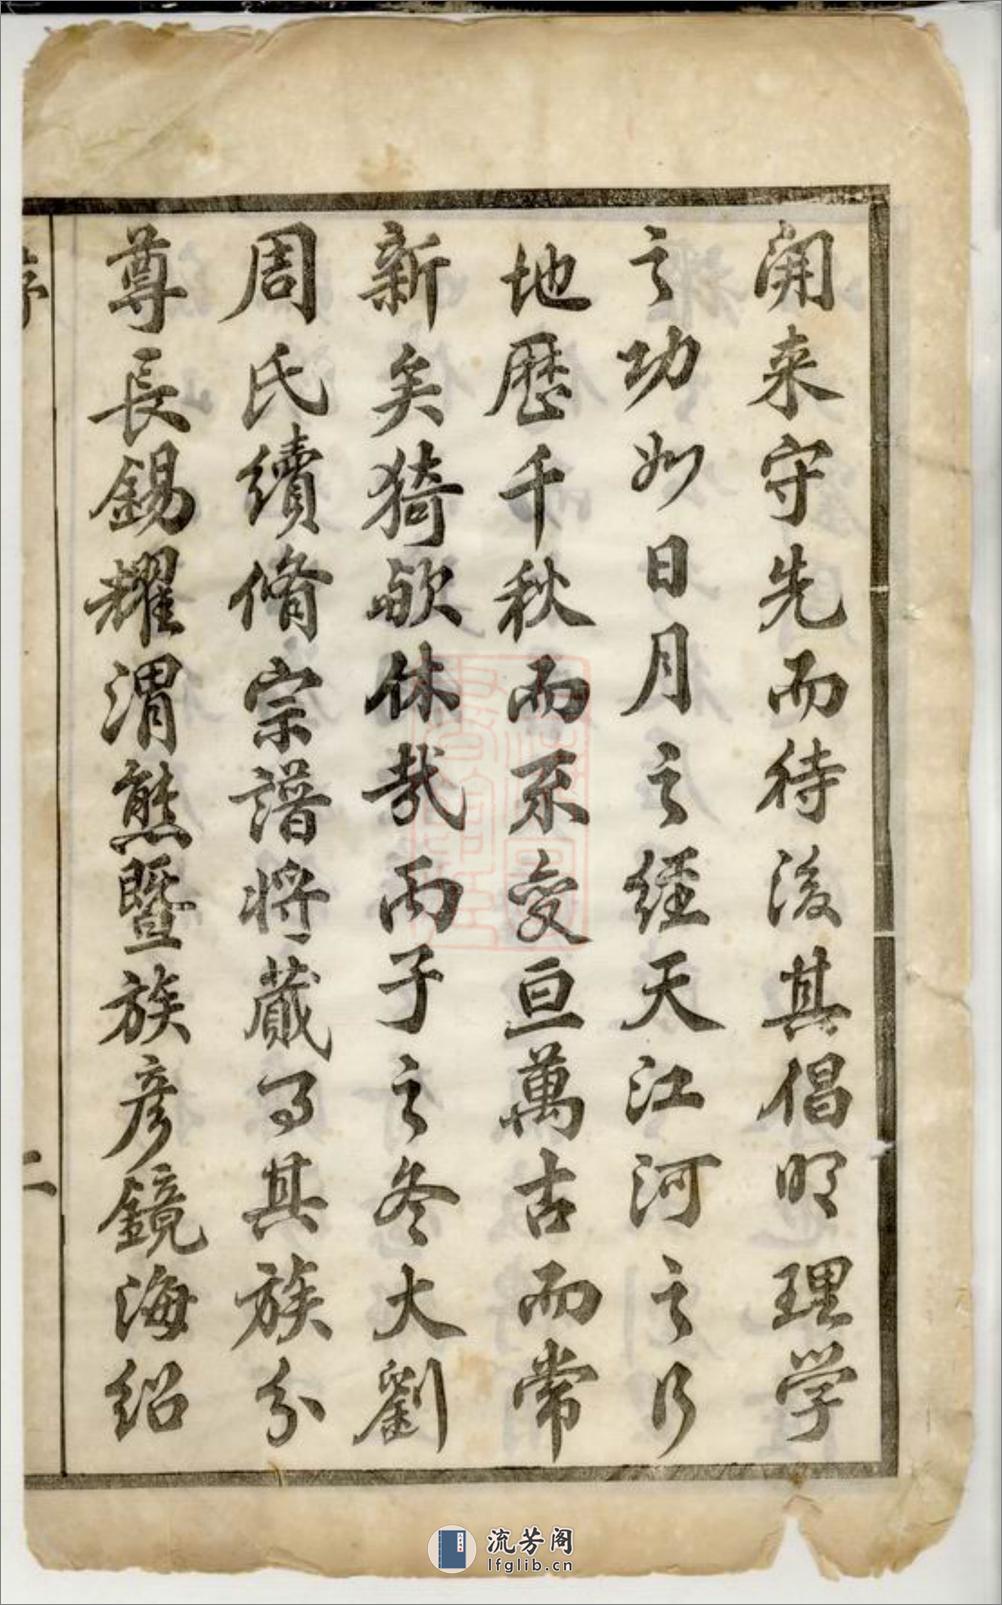 開来守先而待後其倡明理学
之功如日月之經天江河之行
地歷千秋而不變亘萬古而常
新矣猗歟休哉丙子之冬大劉
周氏續脩宗譜將蕆事其族分
尊長錫耀渭熊暨族彦鏡海紹
序
二
流芳阁
lfglib.cn